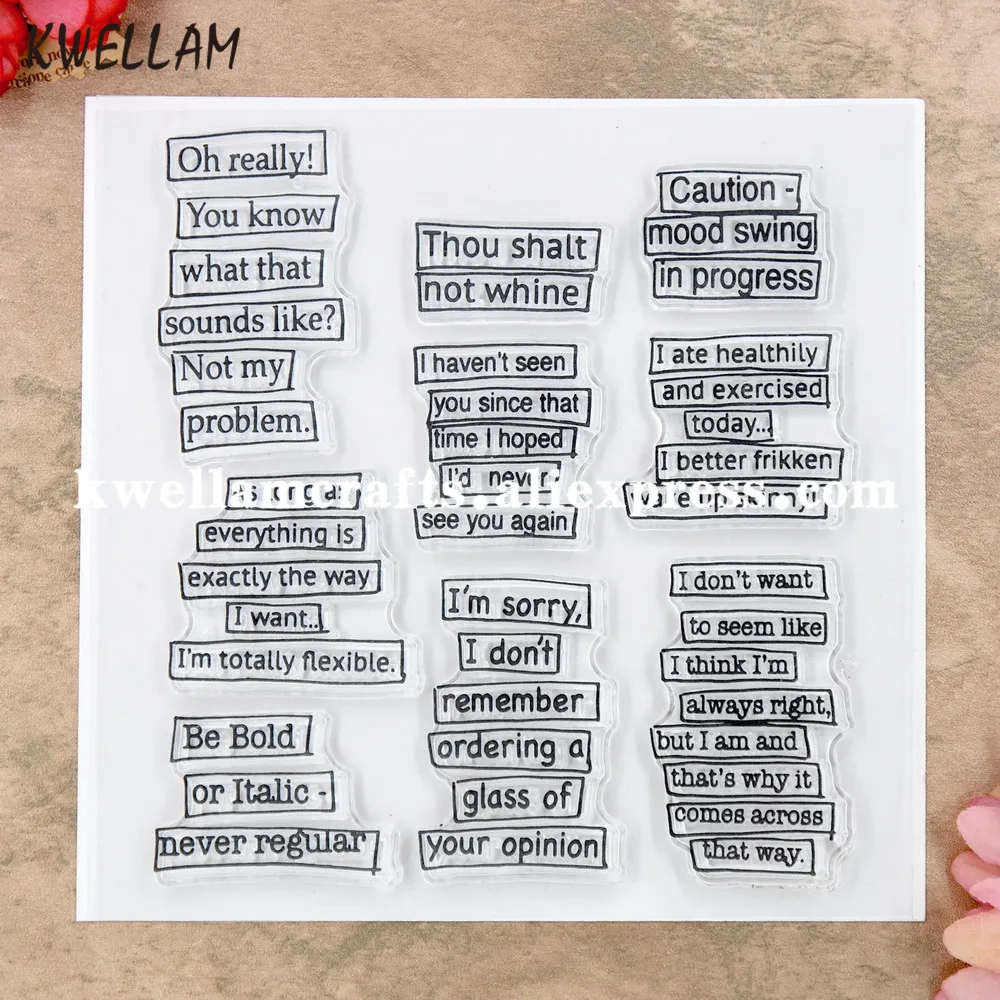 KWELLAM
Oh really!
You know
what that
sounds like?
Not my
problem.
Thou shalt
not whine
Caution -
mood swing
in progress
I haven't seen
you since that
time I hoped
I'd never
see you again
I ate healthily
and exercised
today...
I better frikken
kwellamcrafts.aliexpress.com
everything is
exactly the way
I want..
I'm totally flexible.
I'm sorry,
I don't
remember
ordering a
glass of
your opinion
I don't want
to seem like
I think I'm
always right,
but I am and
that's why it
comes across
that way.
Be Bold
or Italic -
never regular